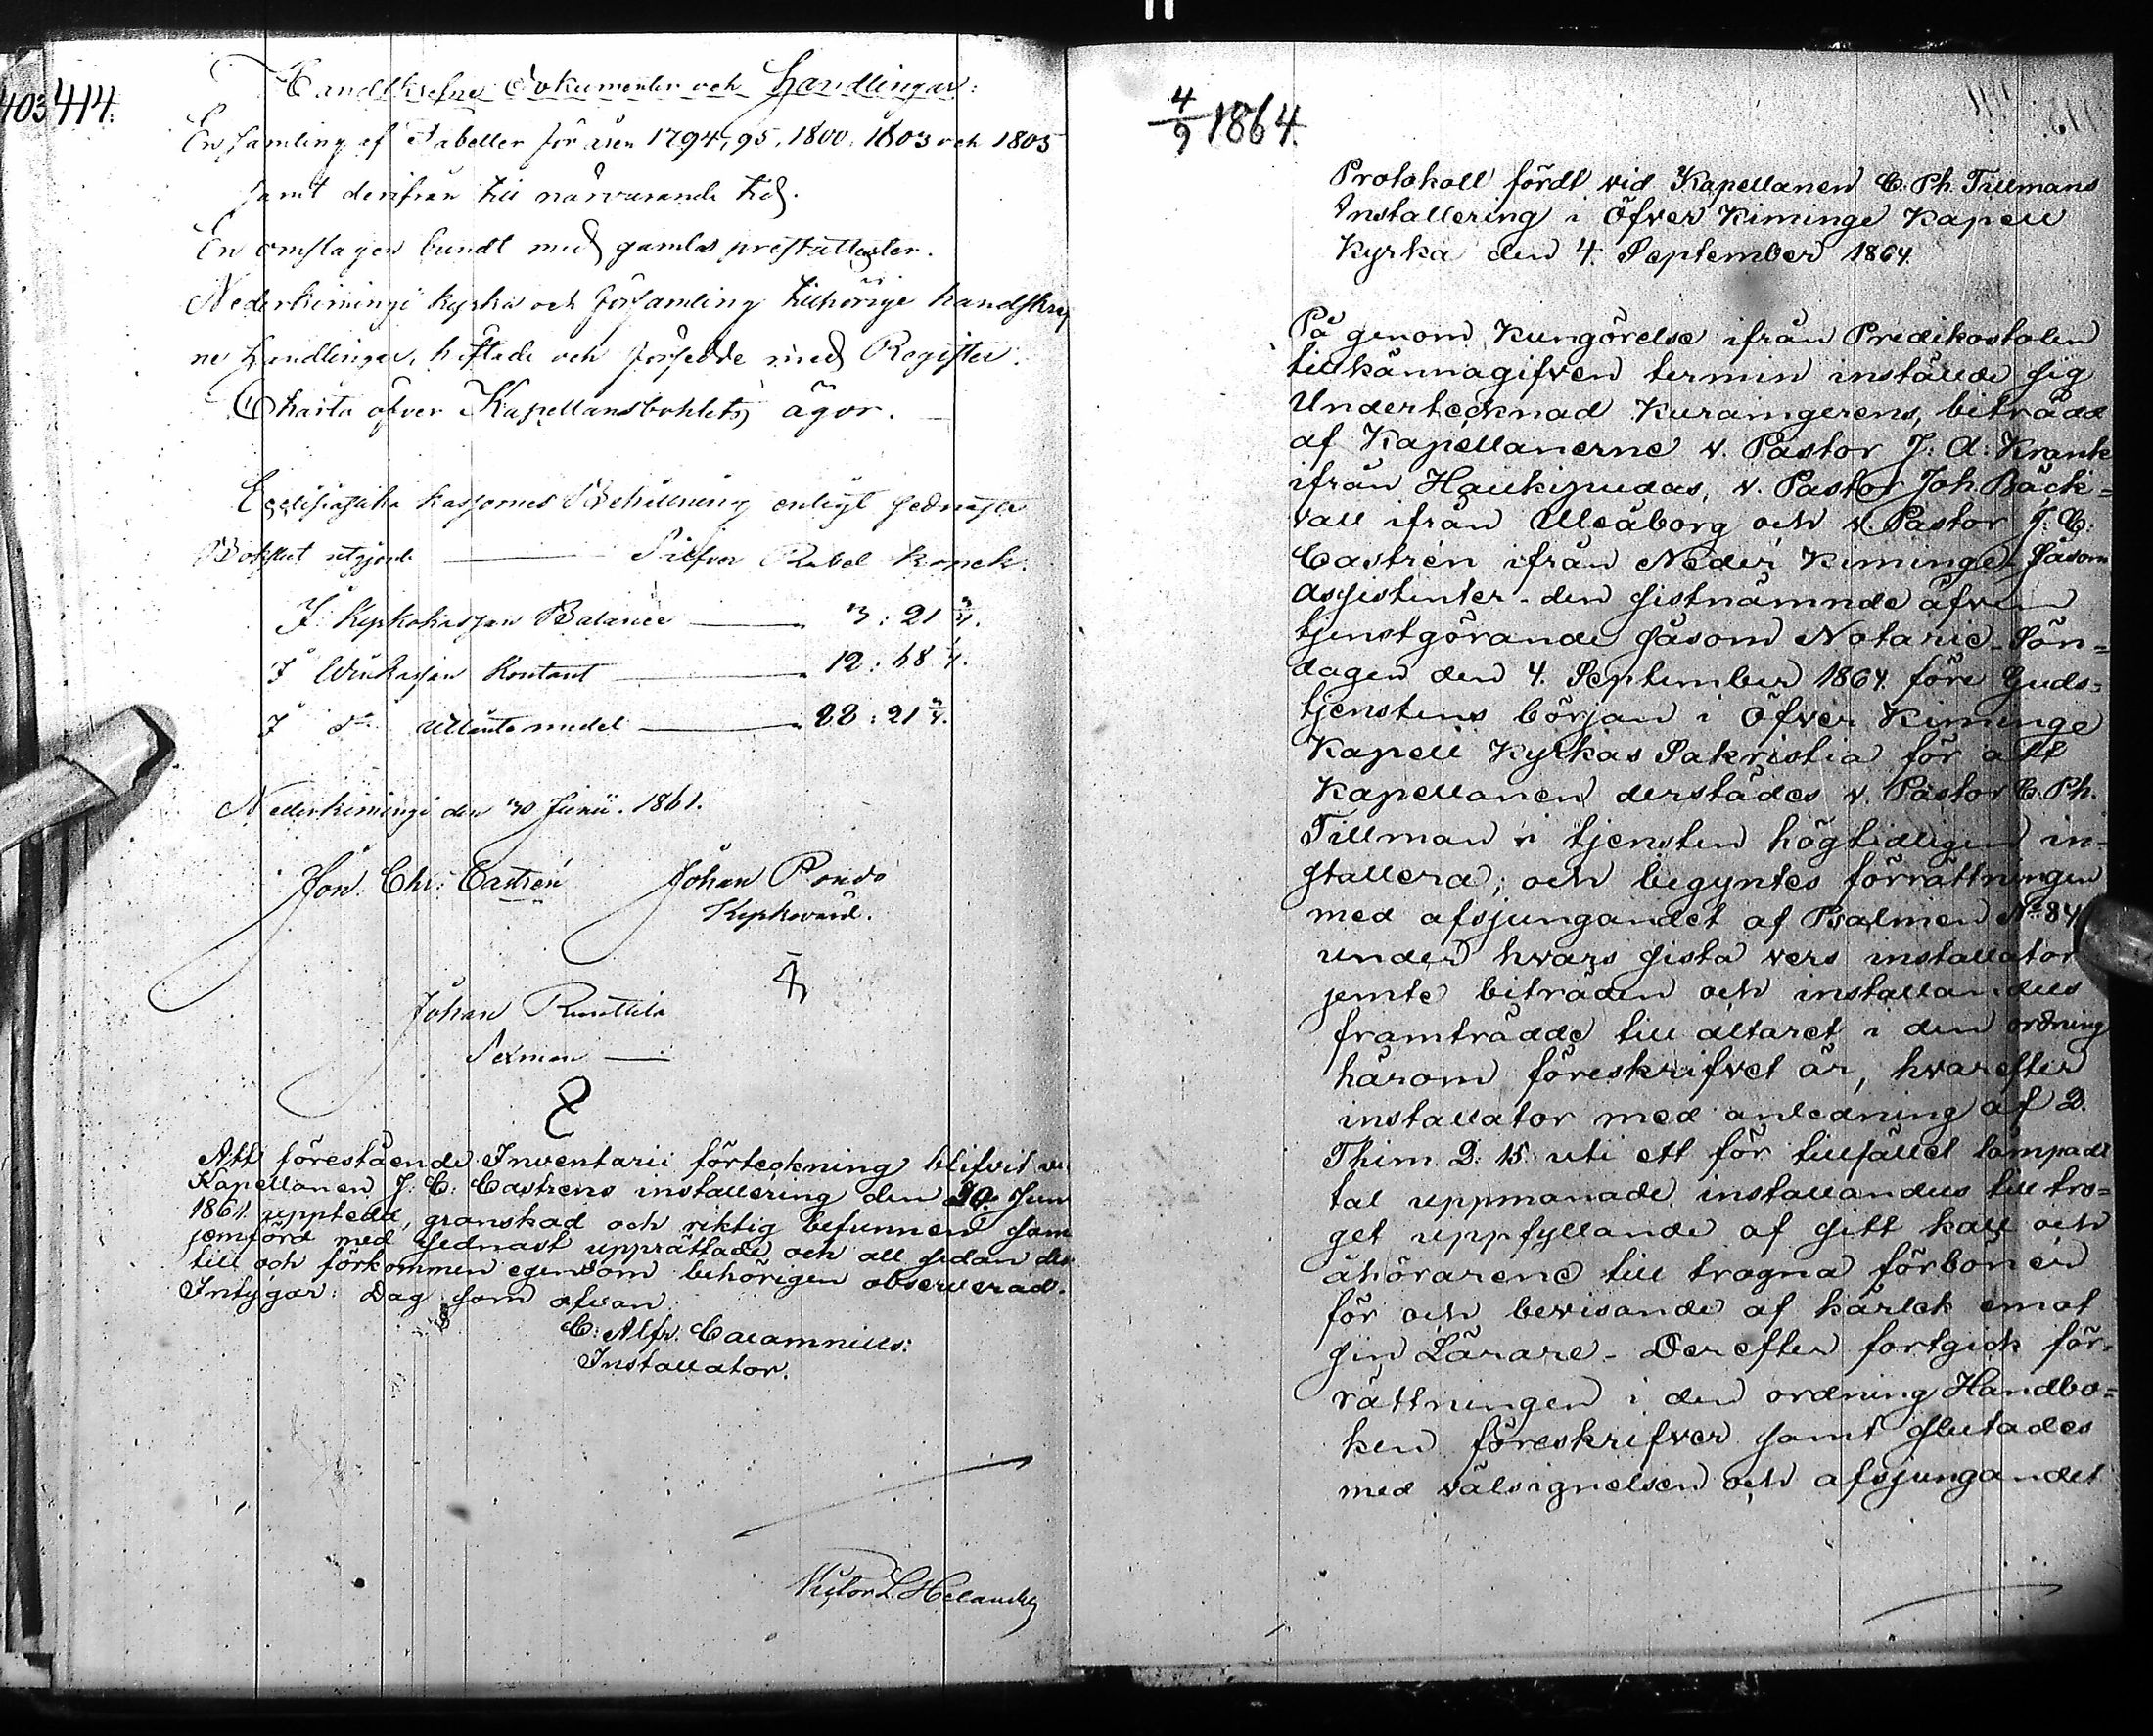 403 414.
Handskrefne Dokumenter och Handlingar:
En samling af Tabeller för åren 1794, 95, 1800, 1803 och 1805
samt derifrån till närvarande tid.
En omslagen bundt med gamla prestattester.
Nederkiminge kyrka och församling tillhörige handskref
ne handlingar, häftade och försedde med Register.
Charta öfver Kapellansbohlets ägor.
Ecclesiastika kassornes Behållning enligt sednaste
Bokslut utgjorde Silfver Rubel Kopek.
I Kyrkokassan Balance 3: 21 3/4.
I Vinkassan Kontant 12: 68 1/4.
I do Utlånte medel 28: 21 3/4.
Nederkiminge den 30 Junii. 1861.
Jon: Chr: Castrén Johan
Kyrkovärd.
Johan
Sexman
Att förestående Inventarii förteckning blifvit vi
Kapellanen J: C: Castréns installéring den 30. Jun
1861 upptedd, granskad och riktig befunnen som
jemförd med sednast upprättade och all sedan des
till och förkommen egendom behörigen observerad.
Intygar: Dag som ofvan
C: Alfr. Calamnius:
Installator.
Victor L. Helander
4/9 1864.
Protokoll fördt vid Kapellanen C. Ph. Tillmans
Installering i Öfver Kiminge Kapell
Kyrka den 4. September 1864.
På genom Kungörelse ifrån Predikostolen
tillkännagifven termin instälde sig
Undertecknad Kuramgerens, biträdd
af Kapellanerne v. Pastor J: A: Krank
ifrån Haukipudas, v. Pastor Joh. Bäck=
vall ifrån Uleåborg och v. Pastor J: C:
Castrén ifrån Neder Kiminge såsom
assistenter - den sistnämnde äfven
tjenstgörande såsom Notarie - Sön=
dagen den 4. September 1864. före Guds=
tjenstens början i Öfver Kiminge
Kapell Kyrkas Sakristia för att
Kapellanen derstädes v. Pastor C. Ph.
Tillman i tjensten högtidligen in-
stallera; och begyntes förrättningen
med afsjungandet af Psalmen No 84
under hvars sista vers installator
jemte biträden och installandus
framträdde till altaret i den ordning
härom föreskrifvet är, hvarefter
installator med anledning af 2.
Thim. 2: 15 uti ett för tillfället lämpadt
tal uppmanade installandus till tro=
get uppfyllande af sitt kall och
åhörarene till trogna förböner
för och bevisande af kärlek emot
sin Lärare - Derefter fortgick för-
rättningen i den ordning Handbo=
ken föreskrifver samt slutades
med välsignelsen och afsjungandet